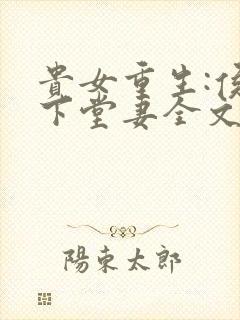 貴女重生:侯
下堂妻全文
陽東太郎